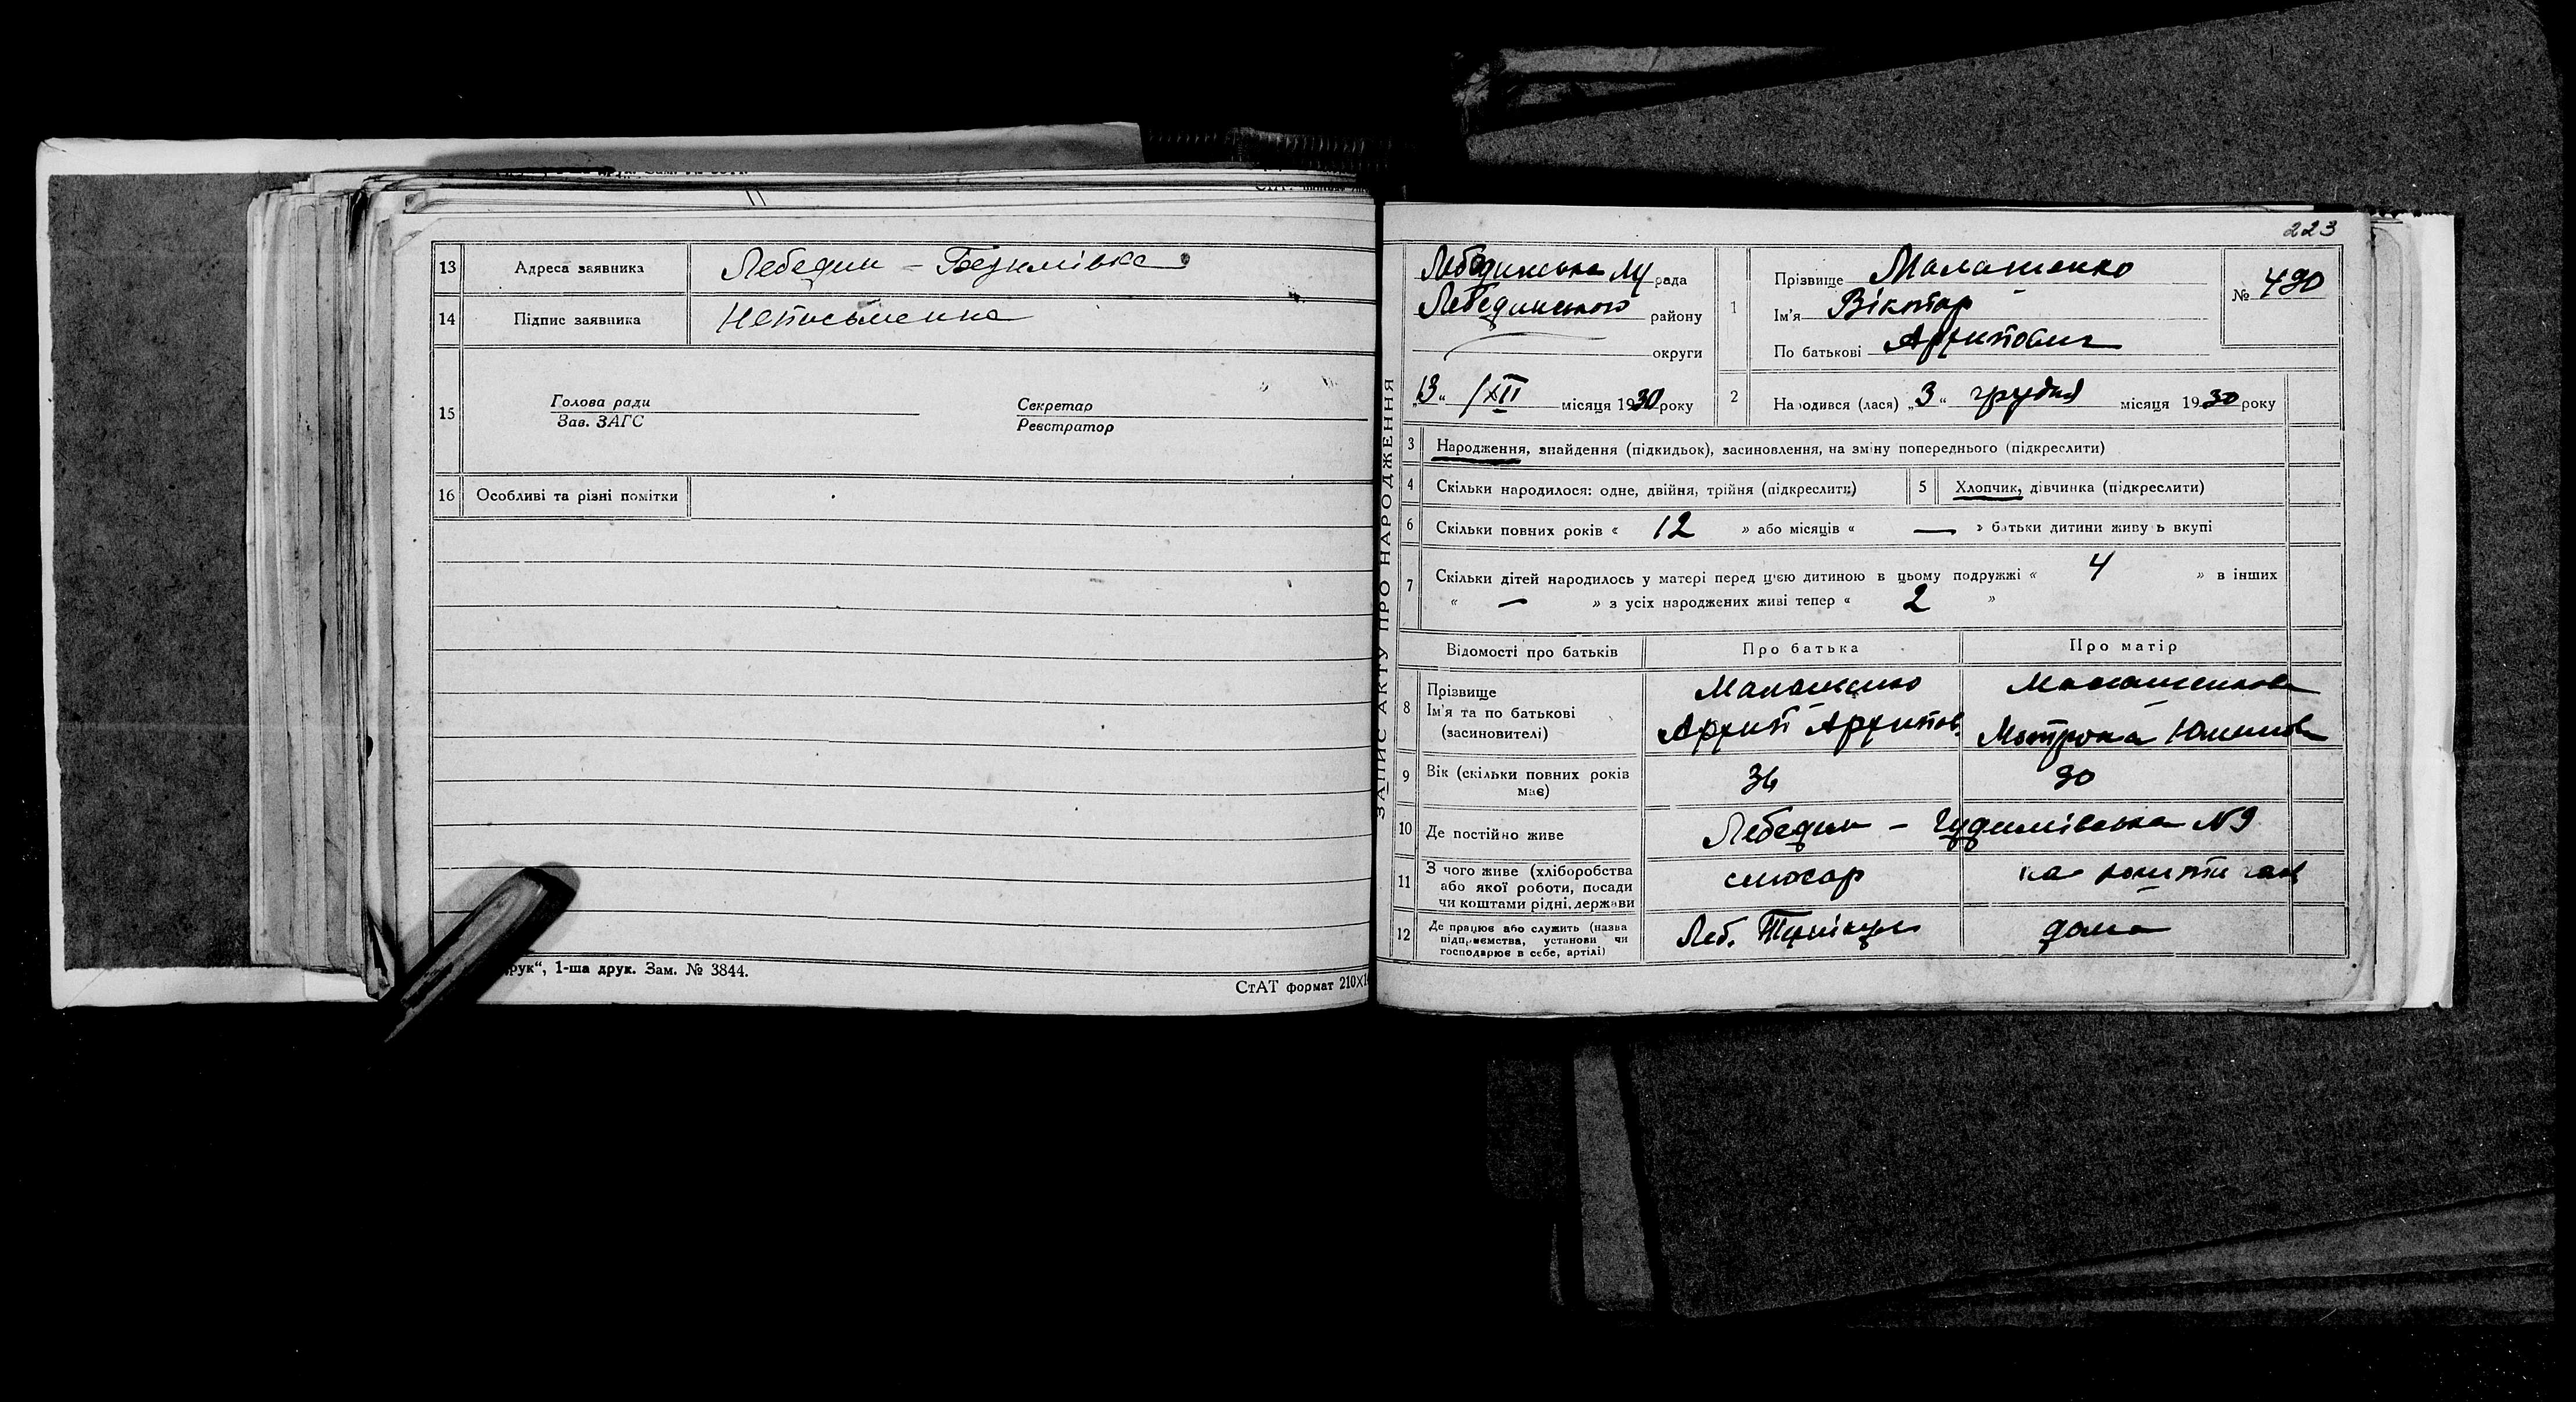 13 Адреса заявника Лебедин –
14 Підпис заявника Неписьменна
15 Голова ради Секретар
Зав. ЗАГС Реєстратор
16 Особливі та різні помітки
друк“, 1-ша друк. Зам. № 3844.
СтАТ формат 210X1
223
ЗАПИС АКТУ ПРО НАРОДЖЕННЯ
Лебединська рада
Лебединського району
округи
„13“ /XII місяця 1930 року
1 Прізвище Малашенко
Ім'я Віктор
По батькові Архипович
№ 490
2 Народився (лася) „3“ грудня місяця 1930 року
3 Народження, знайдення (підкидьок), засиновлення, на зміну попереднього (підкреслити)
4 Скільки народилося: одне, двійня, трійня (підкреслити) 5 Хлопчик, дівчинка (підкреслити)
6 Скільки повних років « 12 » або місяців « — » батьки дитини живуть вкупі
7 Скільки дітей народилось у матері перед цією дитиною в цьому подружжі « 4 » в інших
« — » з усіх народжених живі тепер « 2 »
Відомості про батьків Про батька Про матір
8 Прізвище Малашенко Малашенкова
Ім'я та по батькові Архип Архипов. Мотрона
(засиновителі)
9 Вік (скільки повних років 36 30
має)
10 Де постійно живе Лебедин – N9
11 З чого живе (хліборобства слюсар на кошти чол
або якої роботи, посади
чи коштами рідні, держави
12 Де працює або служить (назва Леб. дома
підприємства, установи чи
господарює в себе, артілі)